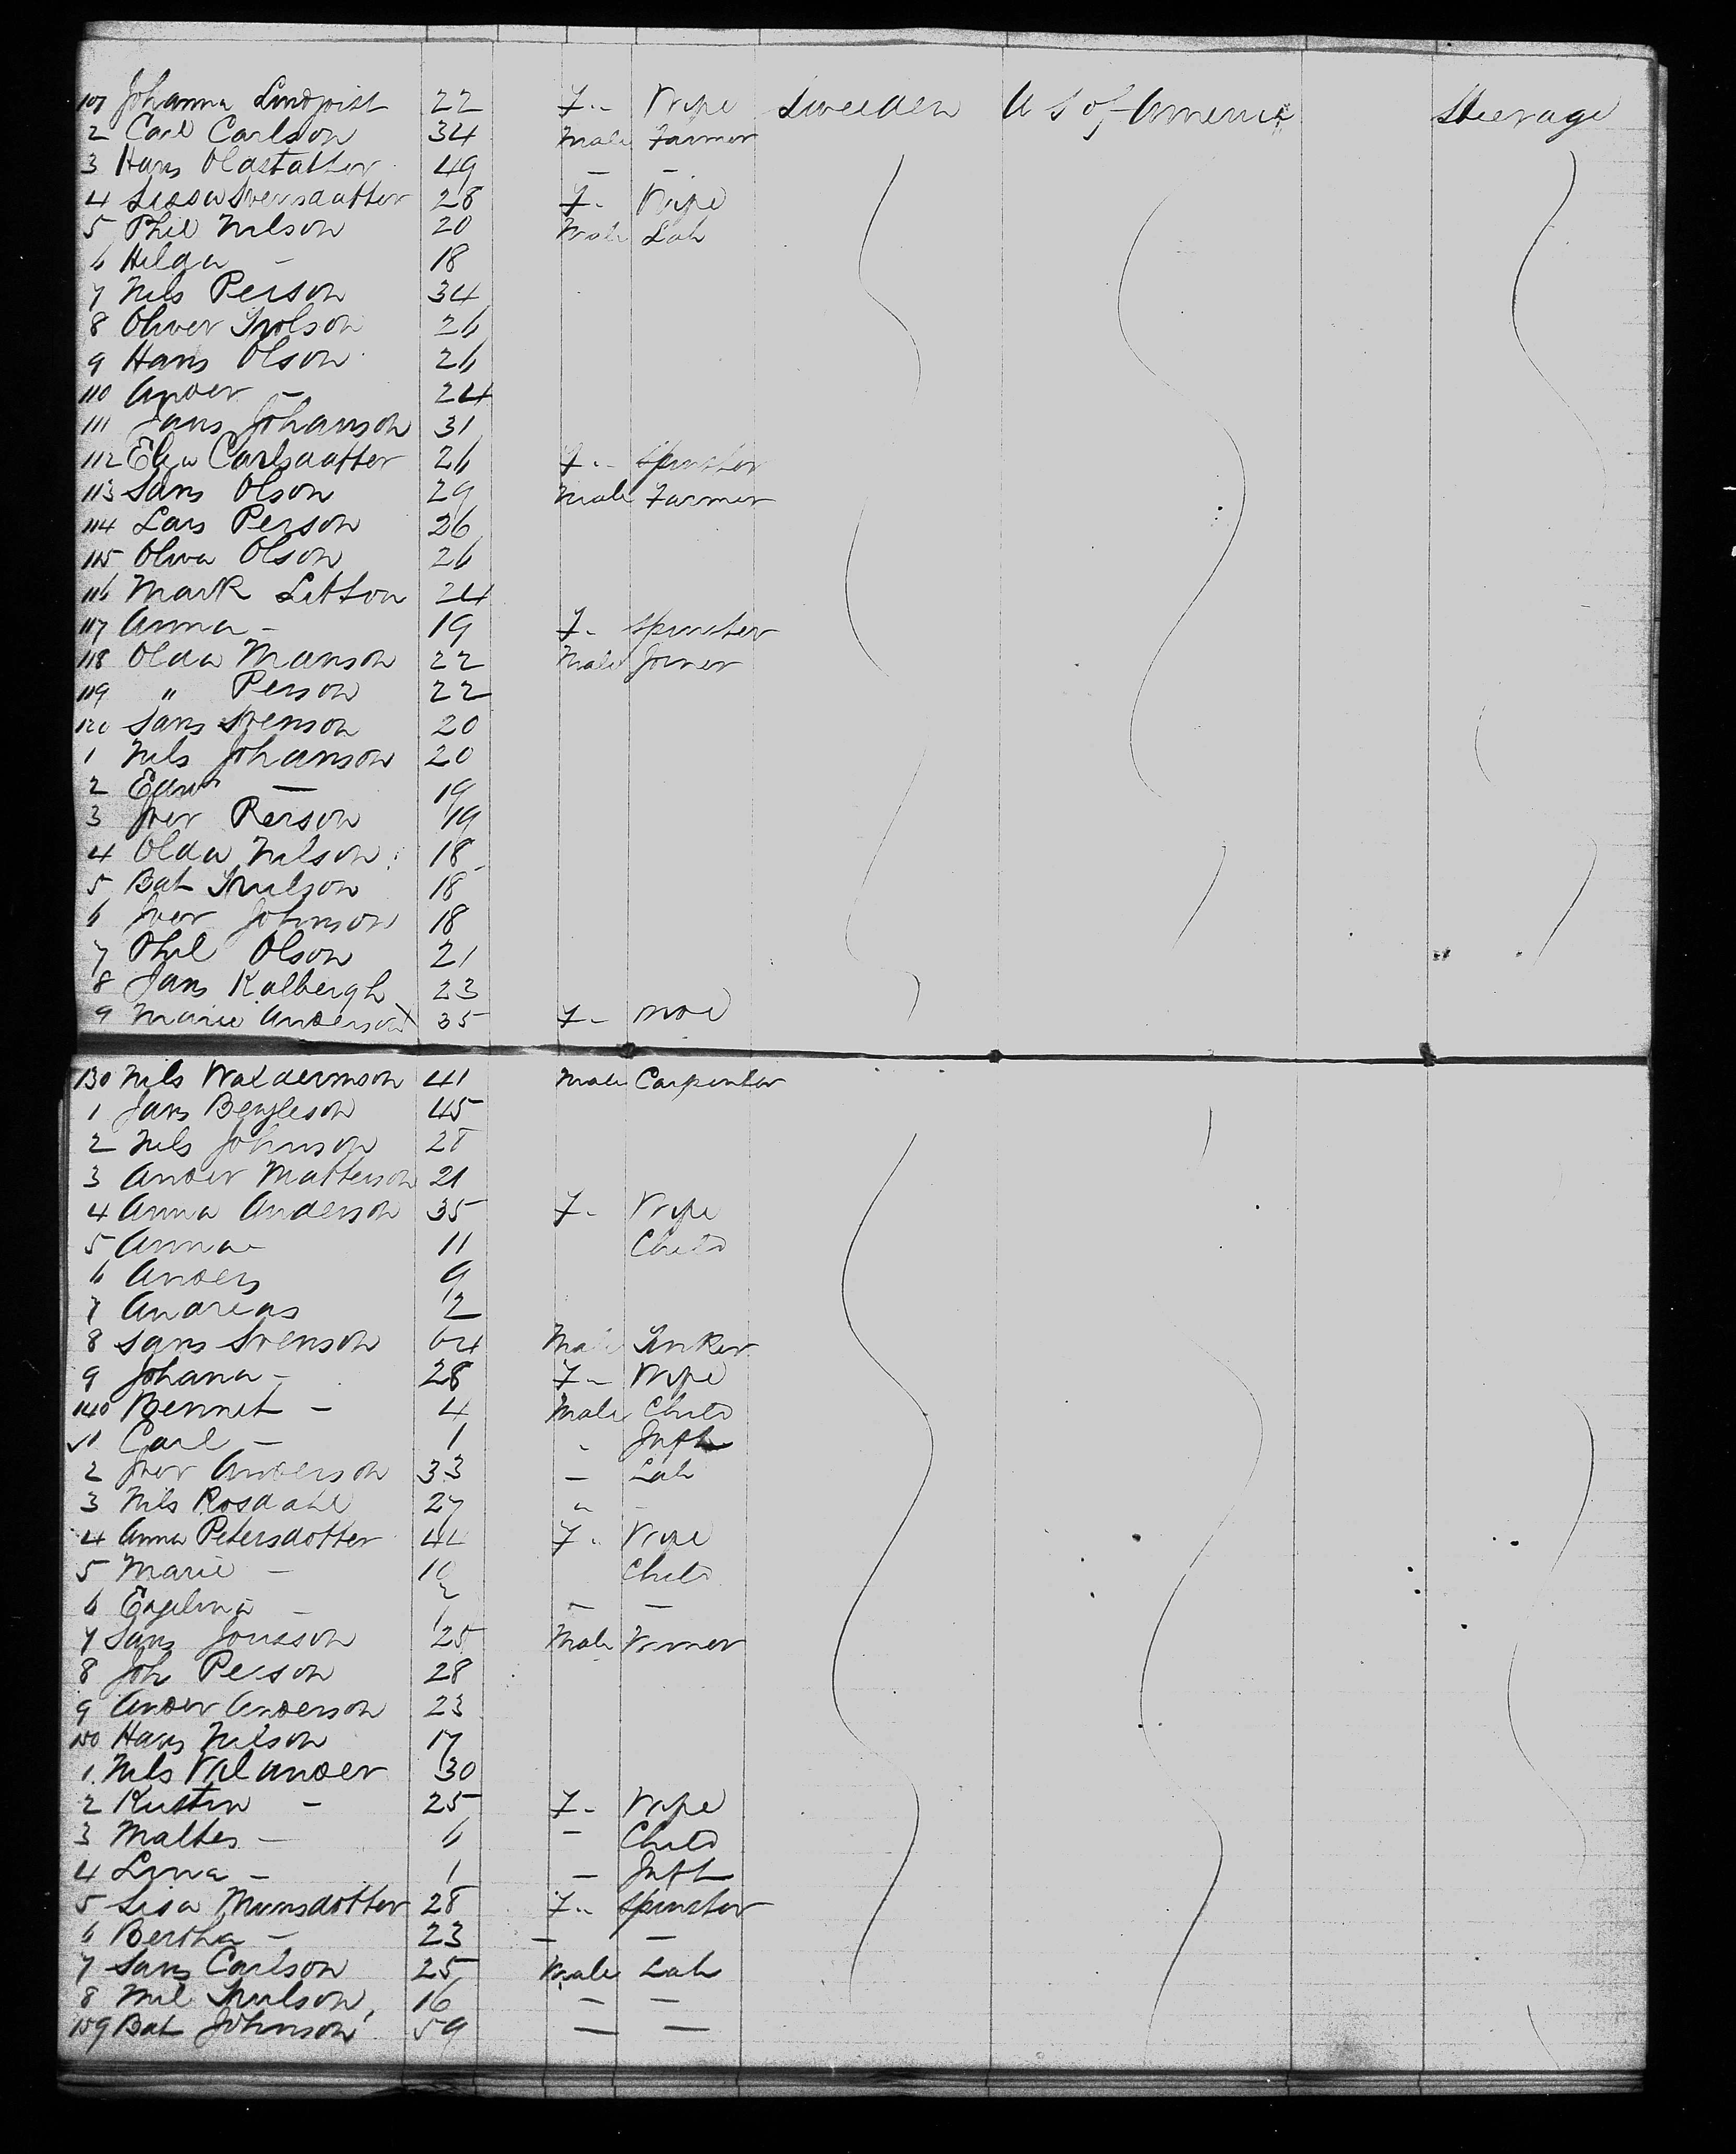 101 Johanna Lindqvist 22 F.- Wife Sweeden U S of America Steerage
2 Carl Carlson 34 Male Farmer
3 Hans 49 - -
4 Lissa Svensdatter 28 F- Wife
5 Phil Nilson 20 Male Lab
6 Hilda - 18
7 Nils Person 34
8 Oliver 26
9 Hans Olson 26
110 Ander - 24
111 Jans Johanson 31
112 Carlsdatter 26 F.- Spinster
113 Sans Olson 29 Male Farmer
114 Lars Person 26
115 Oliva Olson 26
116 Mark Litton 24
117 Anna - 19 F- Spinster
118 Olda Manson 22 Male Joiner
119 " Person 22
120 Sans Svenson 20
1 Nils Johanson 20
2 - 19
3 Iver Person 19
4 Olda Nilson 18
5 Bat 18
6 Iver Johnson 18
7 Phil Olson 21
8 Jans Kalbergh 23
9 Marie Anderson 35 F-
130 Nils Waldermson 41 Male Carpenter
1 Jans 45
2 Nils Johnson 28
3 Ander Matterson 21
4 Anna Anderson 35 F- Wife
5 Anna - 11 Child
6 Anders 9
7 Andreas 2
8 Sans Svenson 64 Male Tinker
9 Johana - 28 F- Wife
140 Bennet - 4 Male Child
1 Carl - 1 - Inft
2 Iver Anderson 33 - Lab
3 Nils Rosdahl 27 " -
4 Anna Petersdotter F. Wife
5 Marie - 10 Child
6 - - -
7 Sans Jonsson 25 Male
8 Joh Person 28
9 Ander Anderson 23
150 Hans Nilson 17
1 Nils Valander 30
2 Kristin - 25 F- Wife
3 Maltes - 6 - Child
4 Lina - 1 - Inft
5 Lisa Munsdotter 28 F.. Spinster
6 Bertha - 23 - -
7 Sans Carlson 25 Male Lab
8 16 - -
159 Bat Johnson 59 - -